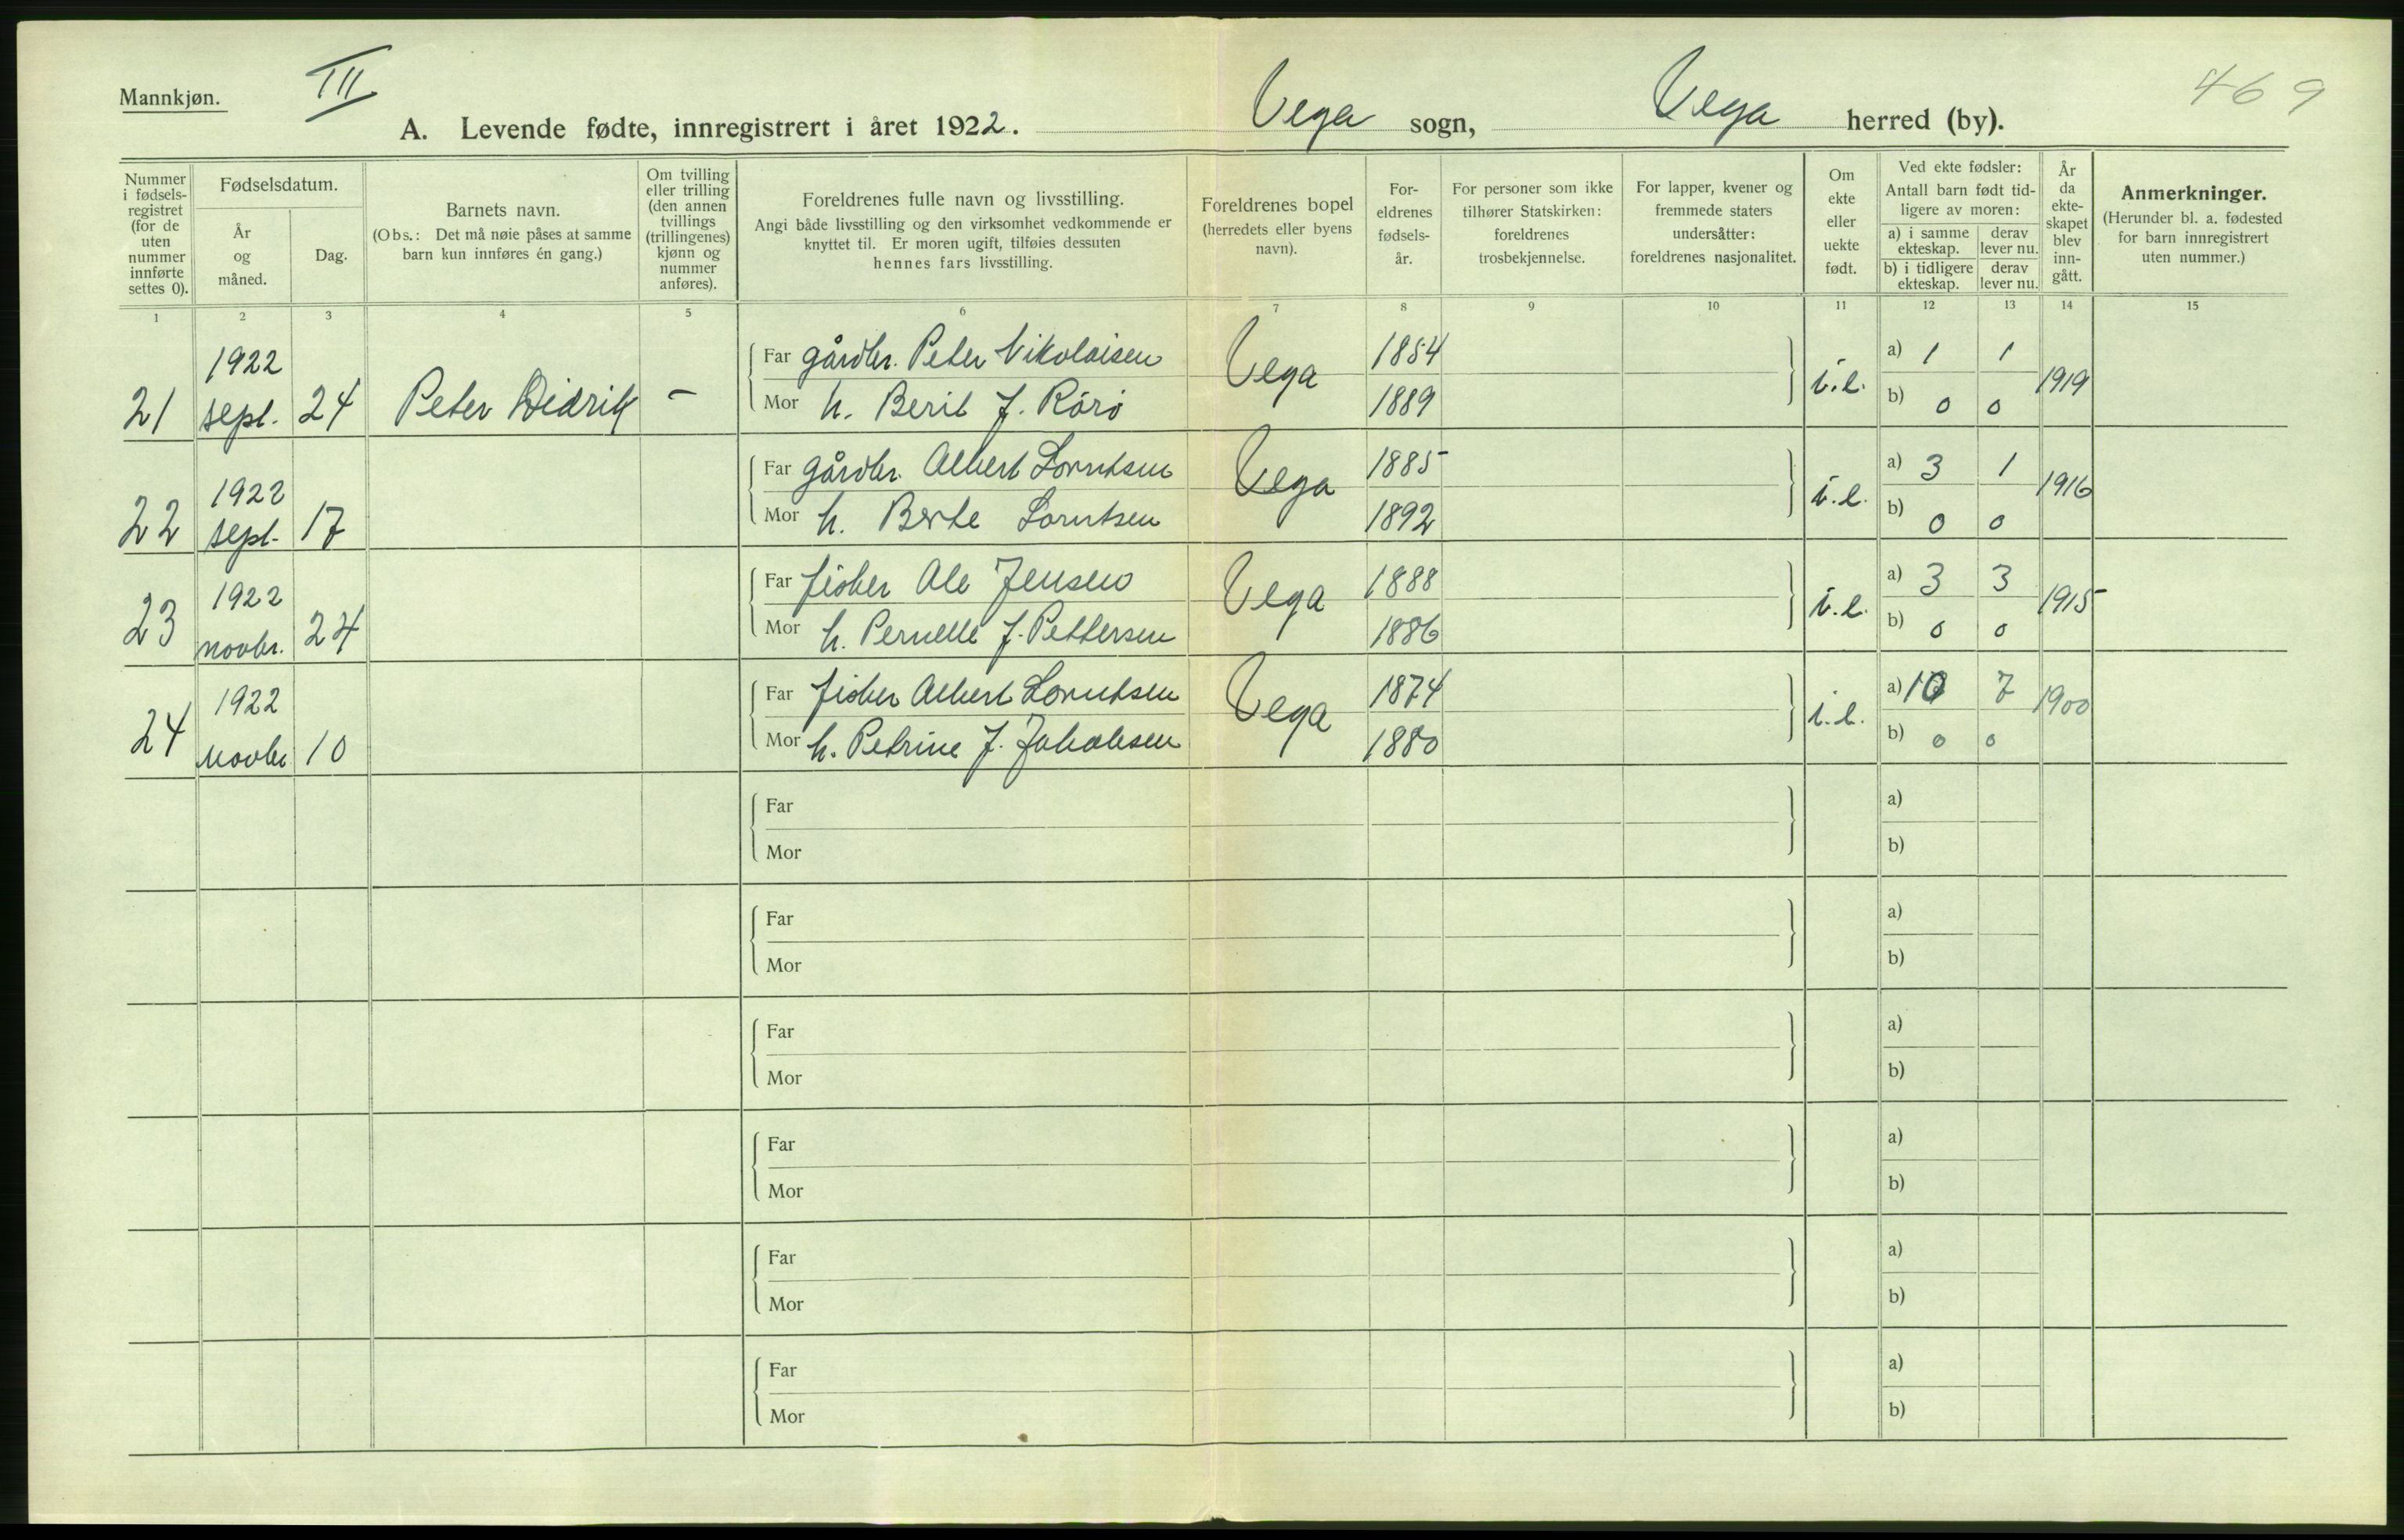 Mannkjøn.
III
469
A. Levende fødte, innregistrert i året 1922. Vega sogn, Vega herred (by).
Nummer i fødsels-registret (for de uten nummer innførte settes 0).
Fødselsdatum.
År og måned.
Dag.
Barnets navn.
(Obs.: Det må nøie påses at samme barn kun innføres én gang.)
Om tvilling eller trilling (den annen tvillings (trillingenes) kjønn og nummer anføres).
Foreldrenes fulle navn og livsstilling.
Angi både livsstilling og den virksomhet vedkommende er knyttet til. Er moren ugift, tilføies dessuten hennes fars livsstilling.
Foreldrenes bopel (herredets eller byens navn).
For-eldrenes fødsels-år.
For personer som ikke tilhører Statskirken: foreldrenes trosbekjennelse.
For lapper, kvener og fremmede staters undersåtter: foreldrenes nasjonalitet.
Om ekte eller uekte født.
Ved ekte fødsler:
Antall barn født tid-ligere av moren:
a) i samme ekteskap.
derav lever nu.
b) i tidligere ekteskap.
derav lever nu.
År da ekte-skapet blev inn-gått.
Anmerkninger.
(Herunder bl. a. fødested for barn innregistrert uten nummer.)
1 2 3 4 5 6 7 8 9 10 11 12 13 14 15
21 1922 sept. 24 Peter Didrik - Far gårdbr. Peter Nikolaisen Vega 1884 i.e. a) 1 1 1919
Mor h. Berit f. Rörö 1889 b) 0 0
22 1922 sept. 17 Far gårdbr. Albert Lorntsen Vega 1885 i.e. a) 3 1 1916
Mor h. Berte Lorntsen 1892 b) 0 0
23 1922 novbr. 24 Far fisker Ole Jensen Vega 1888 i.e. a) 3 3 1915
Mor h. Pernelle f. Pettersen 1886 b) 0 0
24 1922 novbr 10 Far fisker Albert Lorntsen Vega 1874 i.e. a) 10 7 1900
Mor h. Petrine f. Jakobsen 1880 b) 0 0
Far a)
Mor b)
Far a)
Mor b)
Far a)
Mor b)
Far a)
Mor b)
Far a)
Mor b)
Far a)
Mor b)